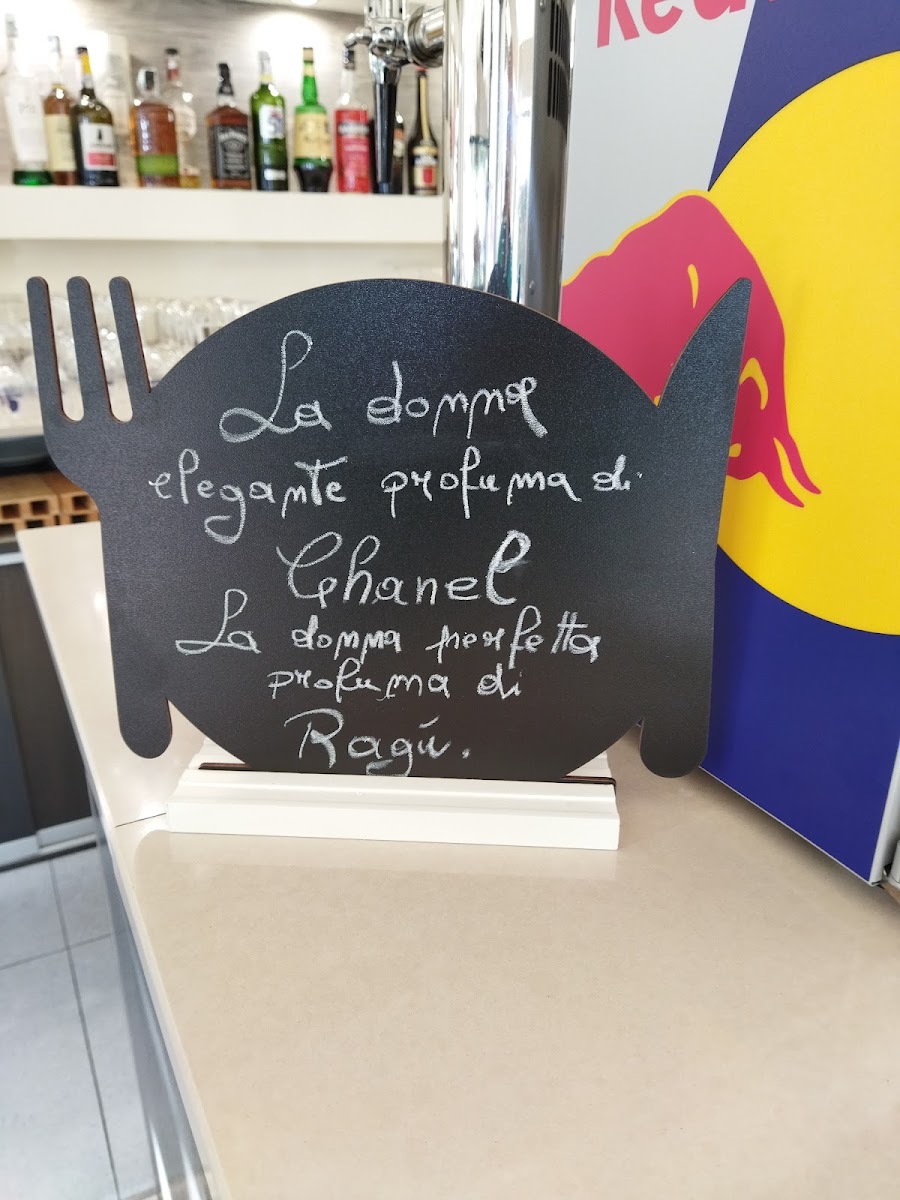 La donna
elegante profuma di
Chanel
La donna perfetta
profuma di
Ragú.